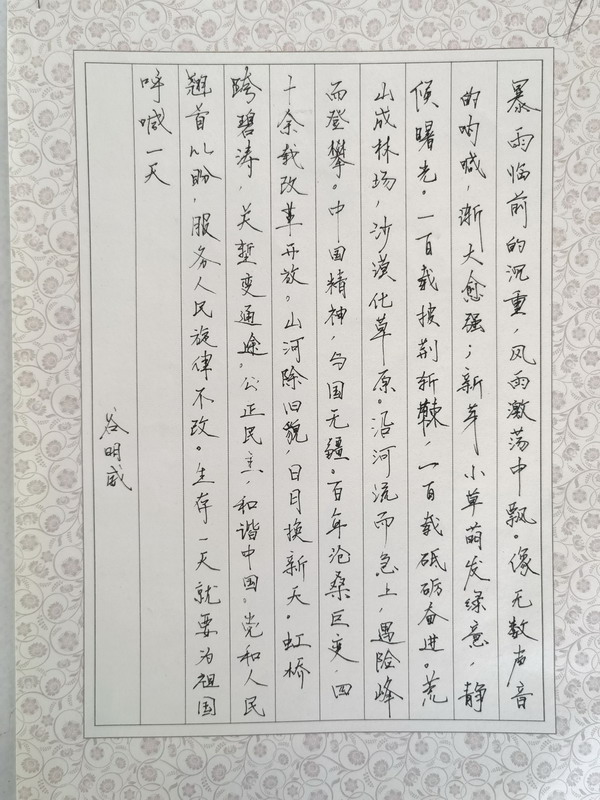 暴雨临前的沉重，风雨激荡中飘。像无数声音
的呐喊，渐大愈强；新芽小草萌发绿意，静
候曙光。一百载披荆斩棘，一百载砥砺奋进。荒
山成林场，沙漠化草原。沿河流而急上，遇险峰
而登攀。中国精神，与国无疆。百年沧桑巨变，四
十余载改革开放。山河除旧貌，日月换新天。虹桥
跨碧涛，关堑变通途，公正民主，和谐中国。党和人民
翘首以盼，服务人民旋律不改。生存一天就要为祖国
呼喊一天
谷明威